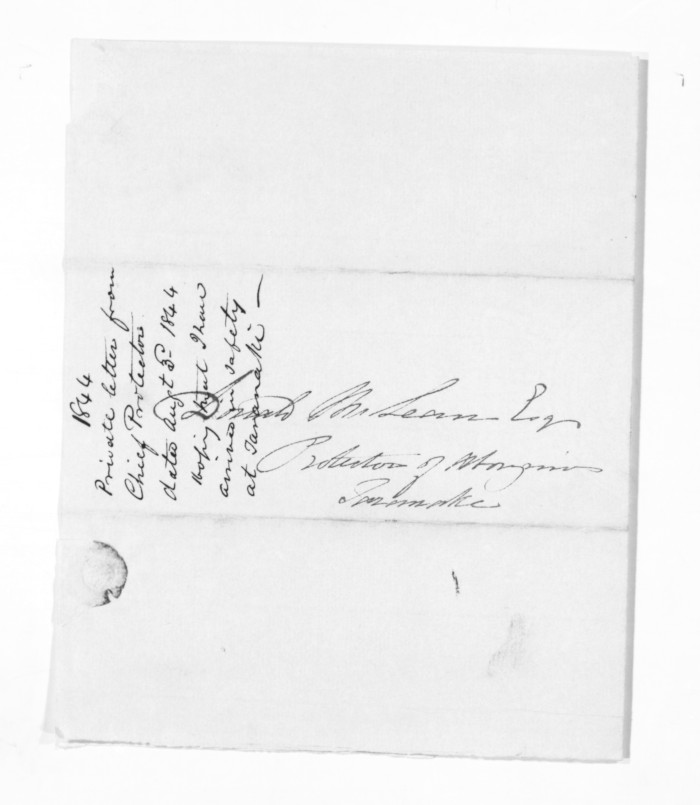 1844
Private letter from
Chief Protector
dated Augt 3d 1844
hoping that I have
arrived in safety
at Taranaki —
Donald McLean Esq
Protector of Aborigines
Taranake